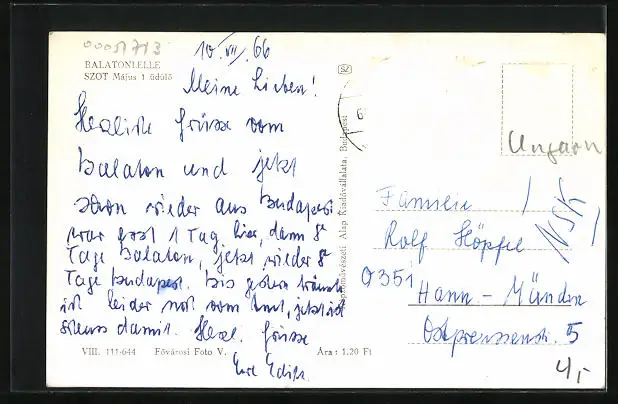 00051713
10. VII. 66
BALATONLELLE
SZOT Május 1 üdülő
Meine Lieben!
Herzliche Grüsse vom
Balaton und jetzt
schon wieder aus Budapest
war erst 1 Tag hier, dann 8
Tage Balaton, jetzt wieder 8
Tage Budapest. Bis gestern
ich leider noch vom jetzt ist
schluss damit. Herzl. Grüsse
Eure Edith.
VIII. 111-644 Fővárosi Foto V. Ára: 1.20 Ft
Képzőművészeti Alap Kiadóvállalata, Budapest
Ungarn
Familie
Rolf Höpfel
NSK
0351
Hann.-Münden
Ostpreussenstr. 5
4,-